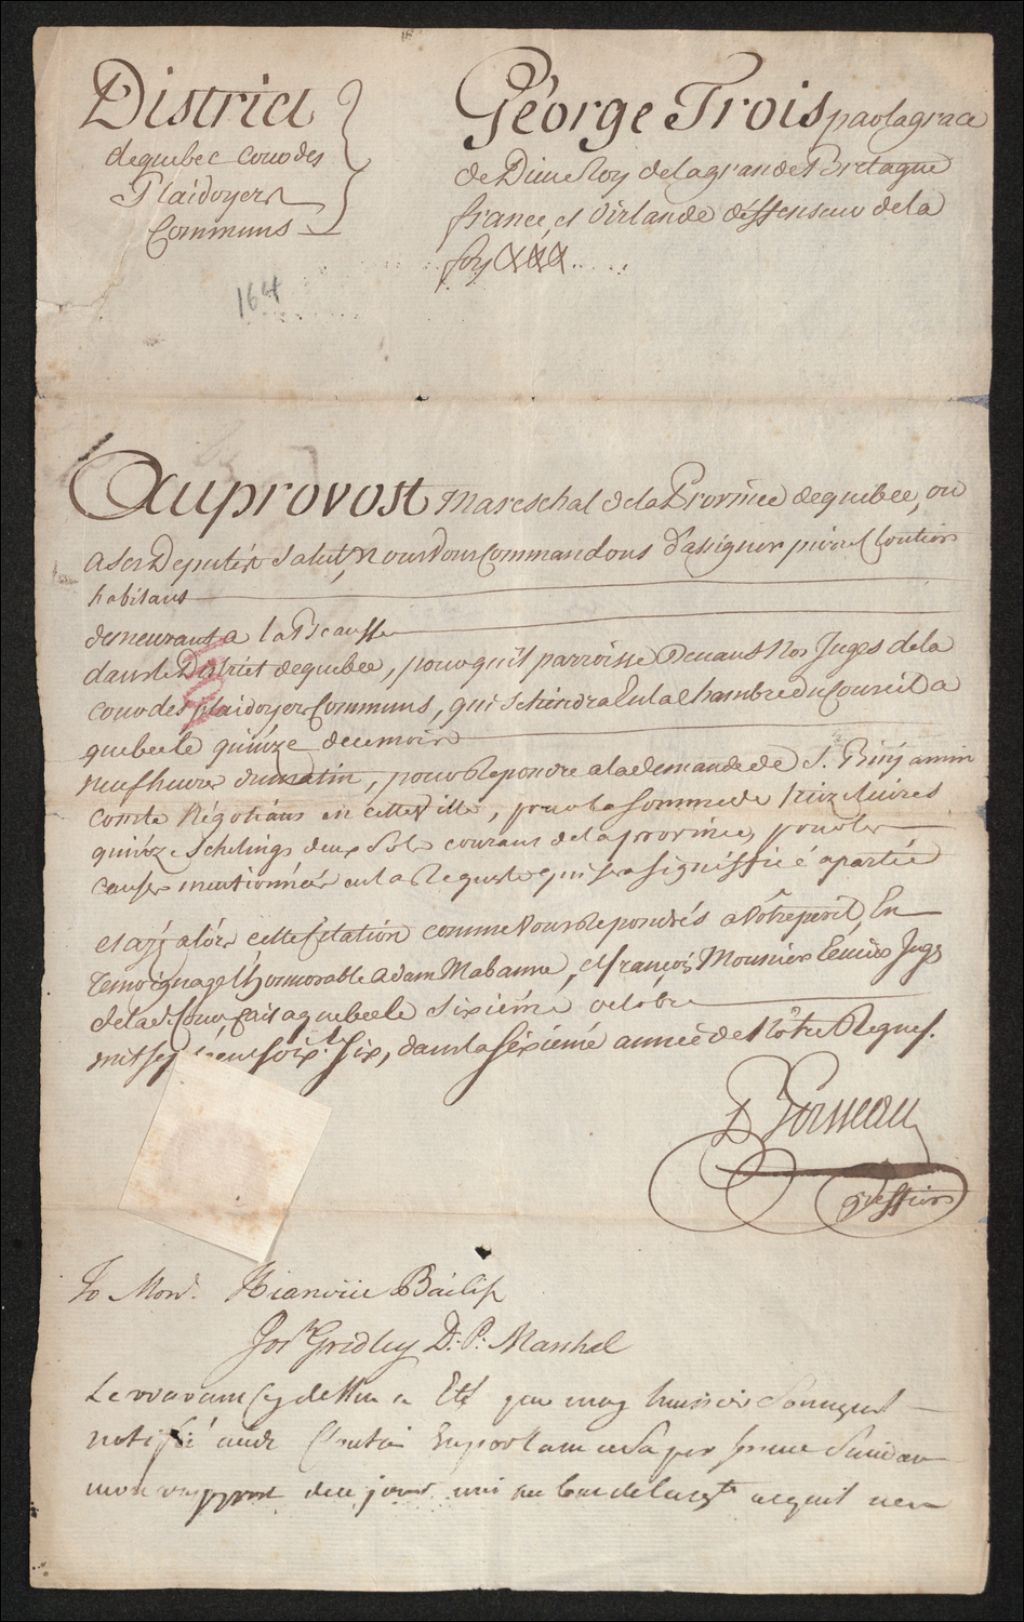 District
de quebec Cour des
Plaidoyers
Communs
George Trois par la grace
de Dieu Roy de la grande Bretagne
france, et D'irlande déffenseur de la
foy &&&.....
164
Au provost Mareschal de la Province de quebec, ou
a ses Deputés Salut, Nous Vous Commandons d'assigner pierre Cloutier
habitant
demeurant a la Beausse
dans le District de quebec, pour qu'il parroisse Devant Nos Juges de la
cour des plaidoyers Communs, qui se tiendra En la Chambre du Conseil a
quebec le quinze de ce mois
neuf heures du matin, pour Repondre a la demande de S. Binjamin
comte Négotiant en cette Ville, pour la somme de
quinze Schelings deux Sols courant de la province, pour les
causes mentionnées en la Requeste qui sera signiffié é a partie
et ayez alors cette Citation comme Vous Repondrés a Vôtre peril, En
Temoignage L'honnorable Adam Mabanne, et françois Mounier Ecuiers Juges
de lad. Cour, fait a quebec le sixiéme octobre
mil sep soix.te six, dans la sixiéme année de Nôtre Regne.
Boisseau
greffier
To Mons.r Bailif
Jos.h Gridley D: P: Marshal
Le a Eté par moy huissier
notifié Cloutié
mon de ce jour